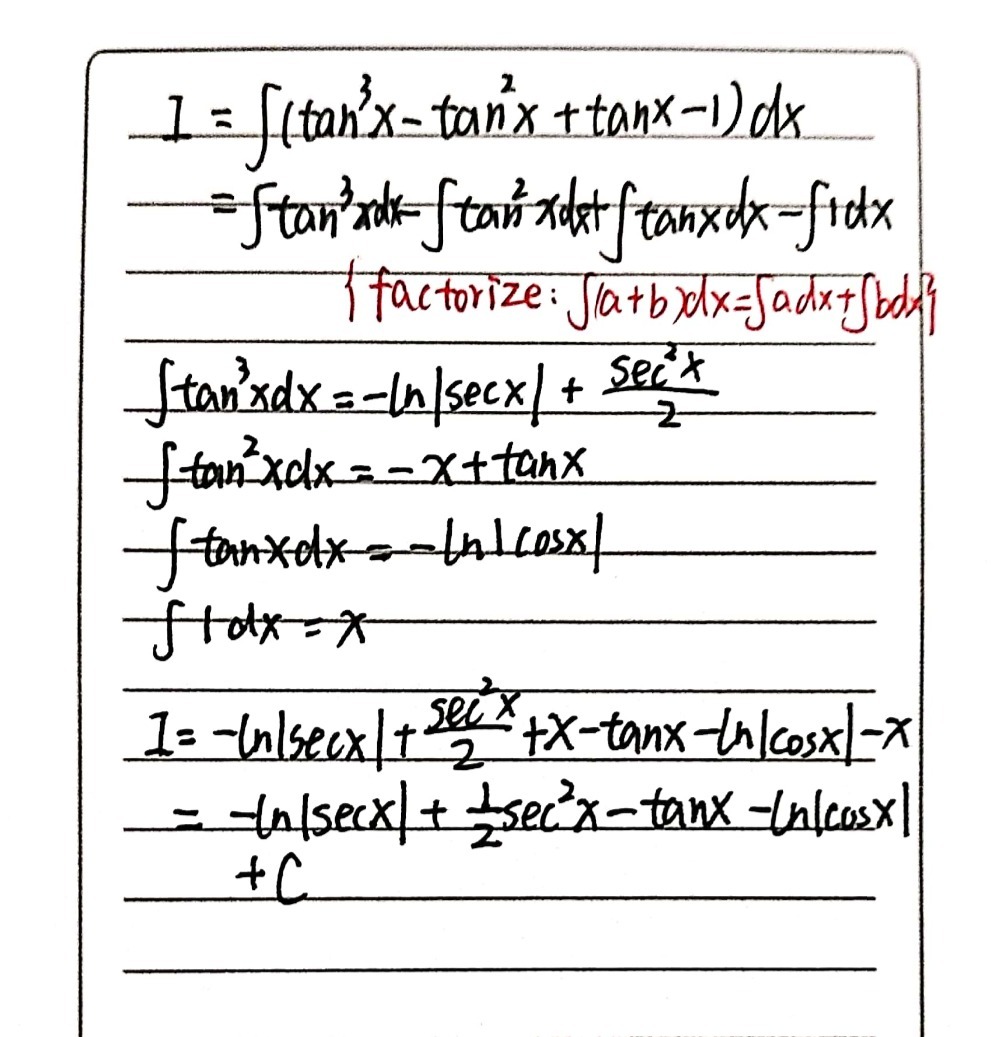 I = ∫(tan³x - tan²x + tanx - 1) dx
= ∫tan³xdx - ∫tan²xdx + ∫tanxdx - ∫1dx
{factorize: ∫(a+b)dx=∫adx+∫bdx}
∫tan³xdx = -ln|secx| + sec²x/2
∫tan²xdx = -x + tanx
∫tanxdx = -ln|cosx|
∫1dx = x
I = -ln|secx| + sec²x/2 + x - tanx - ln|cosx| - x
= -ln|secx| + 1/2 sec²x - tanx - ln|cosx|
+ C